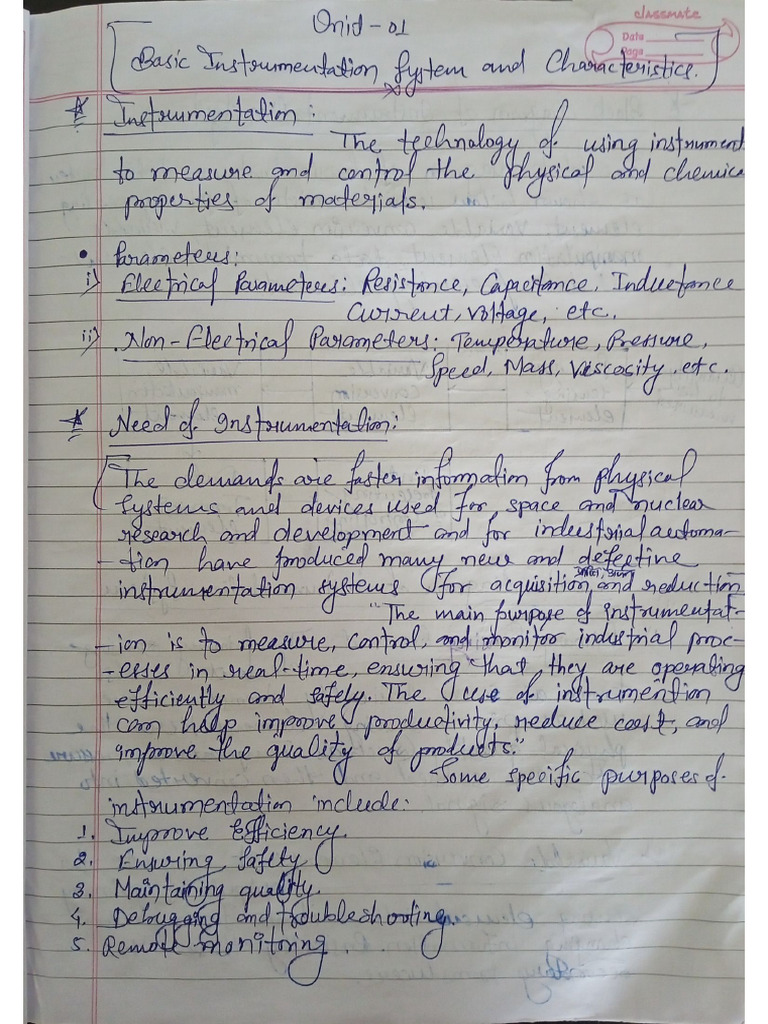 Unid-01
classmate
Date
Page
Basic Instrumentation System and Characteristics.
Instrumentation:
The technology of using instrument
to measure and control the physical and chemica
properties of materials.
• Parameters:
i) Electrical Parameters: Resistance, Capacitance, Inductance
Current, Voltage, etc.
ii) Non-Electrical Parameters: Temperature, Pressure,
Speed, Mass, Viscosity. etc.
Need of Instrumentation:
The demands are faster information from physical
systems and devices used for space and nuclear
research and development and for industrial automa-
-tion have produced many new and defective
instrumentation systems for acquisition and reduction
"The main purpose of instrumentat-
-ion is to measure, control, and monitor industrial proc-
-esses in real-time, ensuring that they are operating
efficiently and safely. The use of instrumention
can help improve productivity, reduce cost, and
improve the quality of products."
Some specific purposes of
instrumentation include:
1. Improve Efficiency.
2. Ensuring Safety
3. Maintaining quality.
4. Debugging and troubleshooting.
5. Remote monitoring.